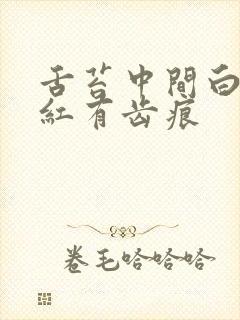 舌苔中間白
紅有齿痕
卷毛哈哈哈